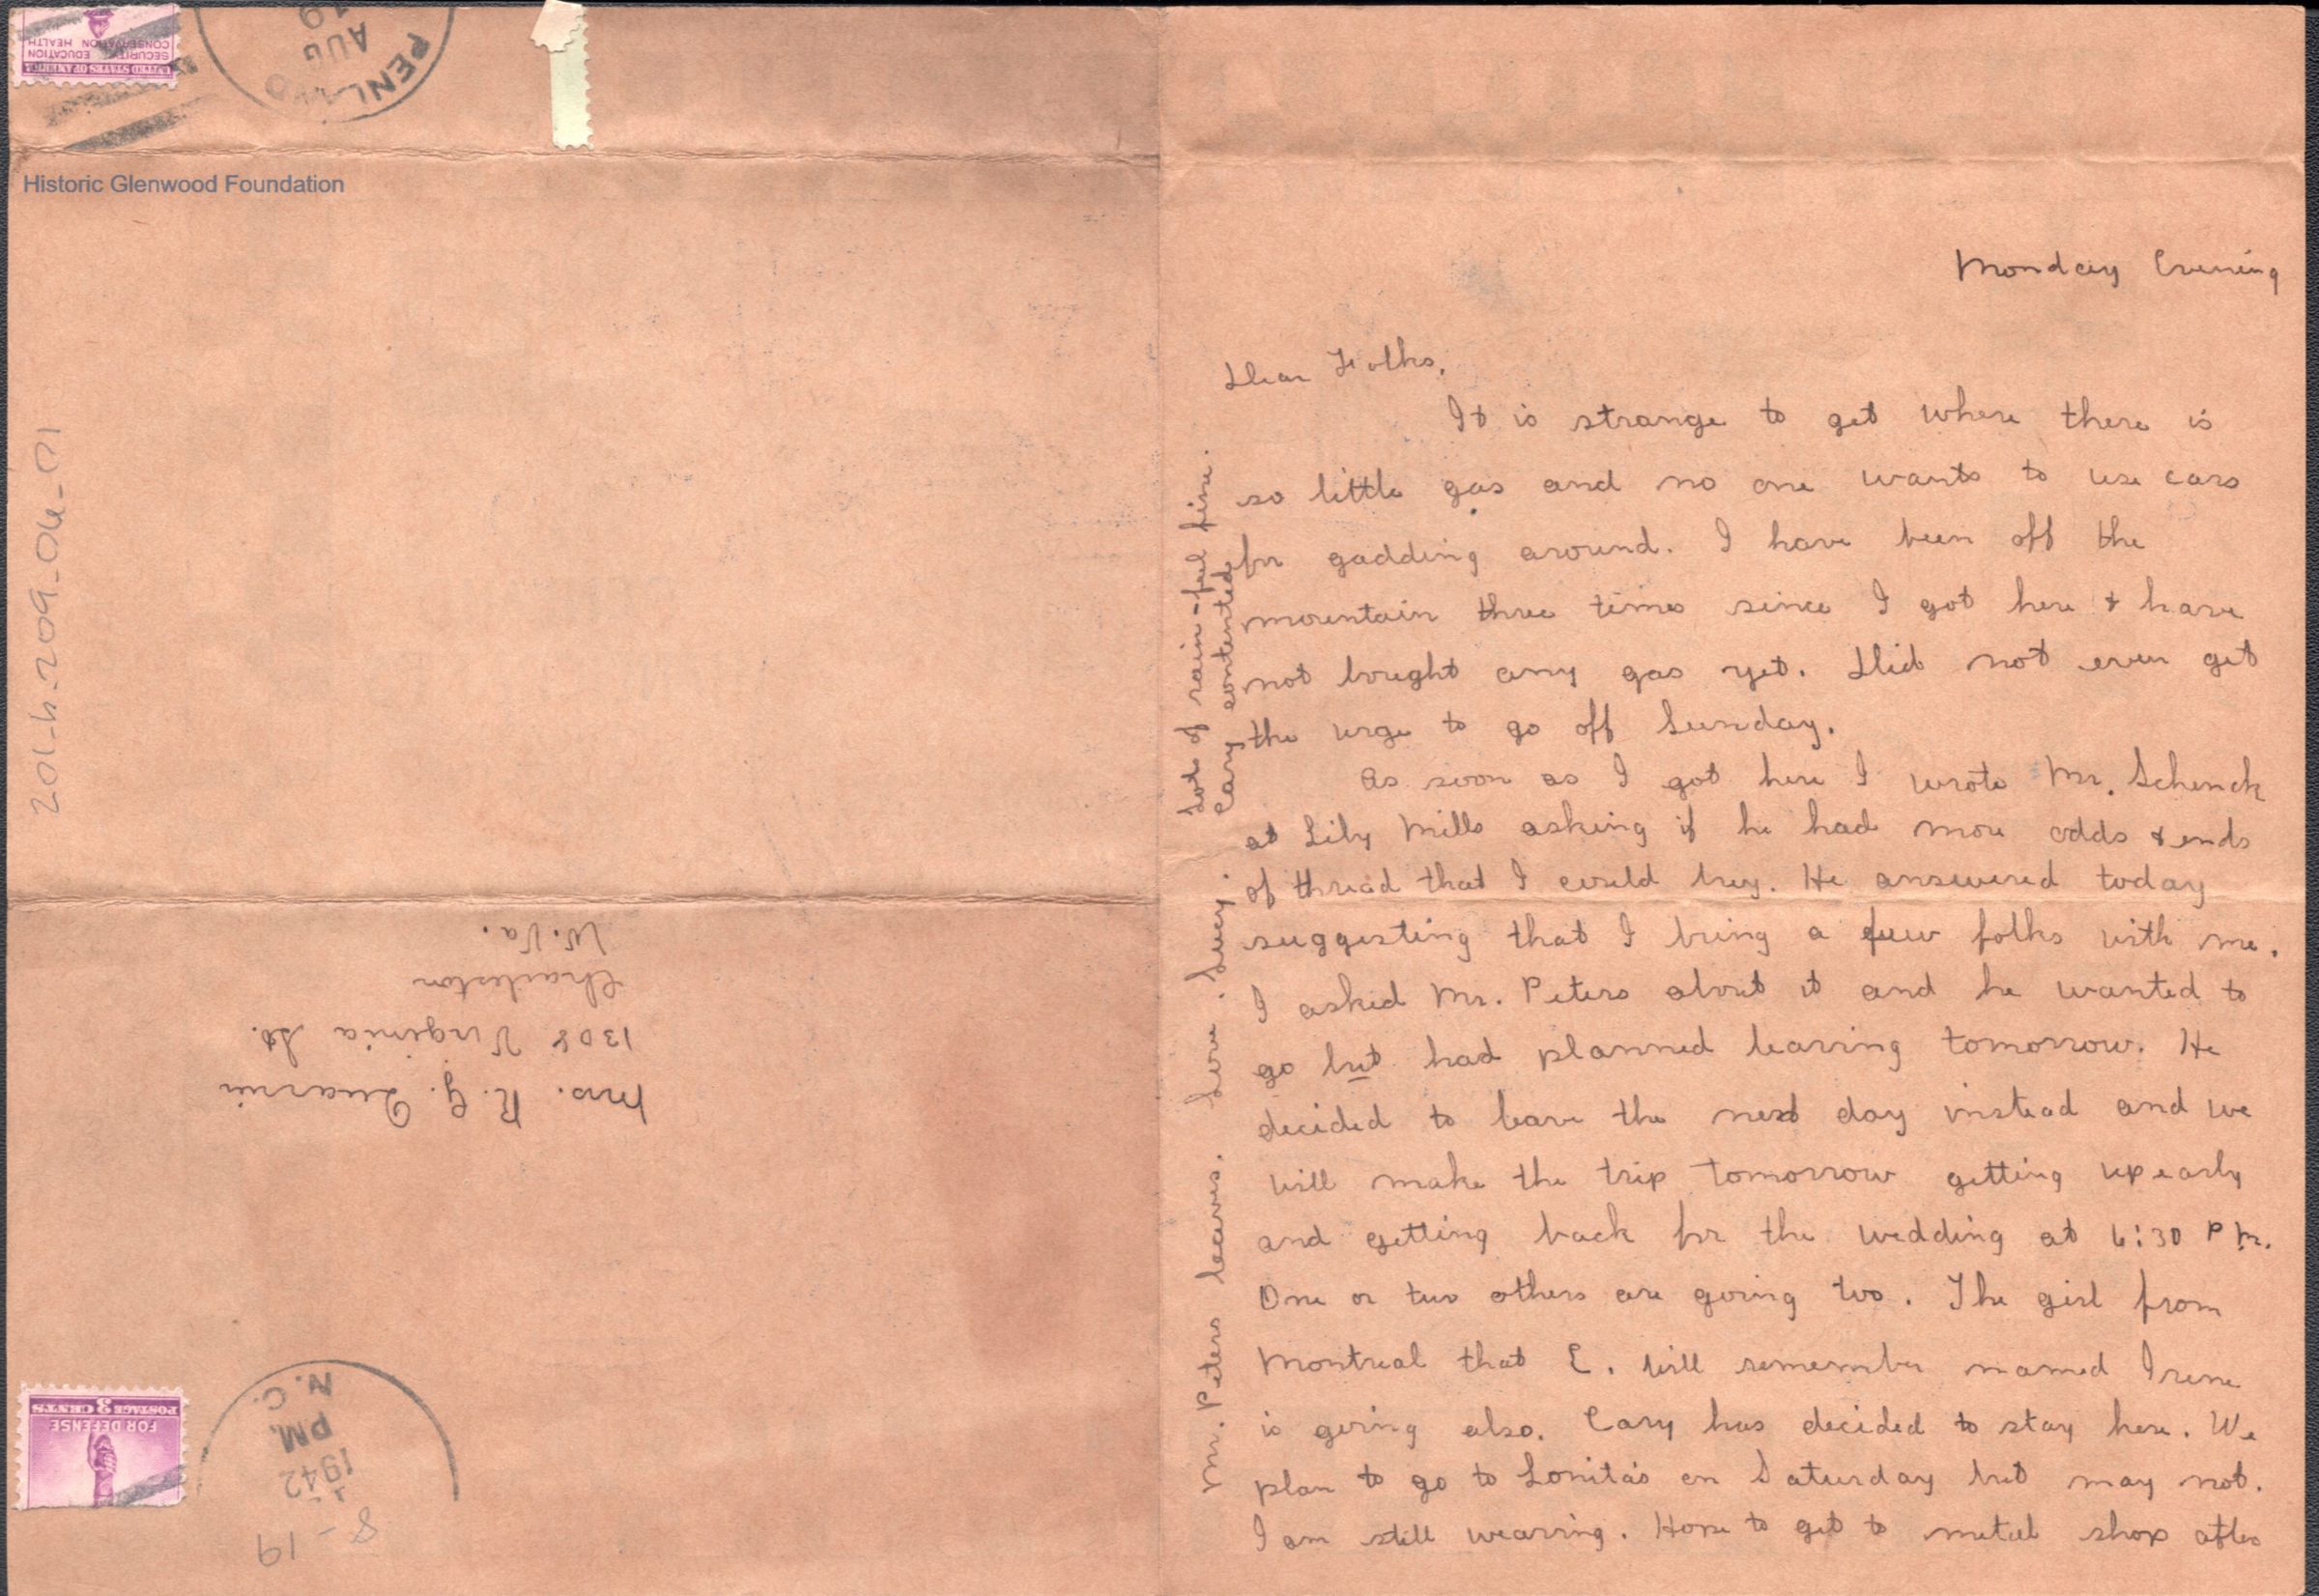 UNITED STATES OF AMERICA
SECURITY EDUCATION
CONSERVATION HEALTH
PENLAND
AUG
19
Historic Glenwood Foundation
201-h-209-06-01
Mrs. R. G. Quarrier
1308 Virginia St.
Charleston
W. Va.
1942
PM
N.C.
8-19
FOR DEFENSE
POSTAGE 3 CENTS
Monday Evening
Dear Folks,
It is strange to get where there is
so little gas and no one wants to use cars
for gadding around. I have been off the
mountain three times since I got here & have
not bought any gas yet. Did not even get
the urge to go off Sunday.
As soon as I got here I wrote Mr. Schenck
at Lily Mills asking if he had more odds & ends
of thread that I could buy. He answered today
suggesting that I bring a few folks with me.
I asked Mr. Peters about it and he wanted to
go but had planned leaving tomorrow. He
decided to leave the next day instead and we
will make the trip tomorrow getting up early
and getting back for the wedding at 6:30 P.M.
One or two others are going too. The girl from
Montreal that E. will remember named Irene
is going also. Cary has decided to stay here. We
plan to go to Lonita's on Saturday but may not.
I am still weaving. Hope to get to metal shop after
Mr. Peters leaves. Love. Lucy.
Lots of rain - feel fine.
Cary contented